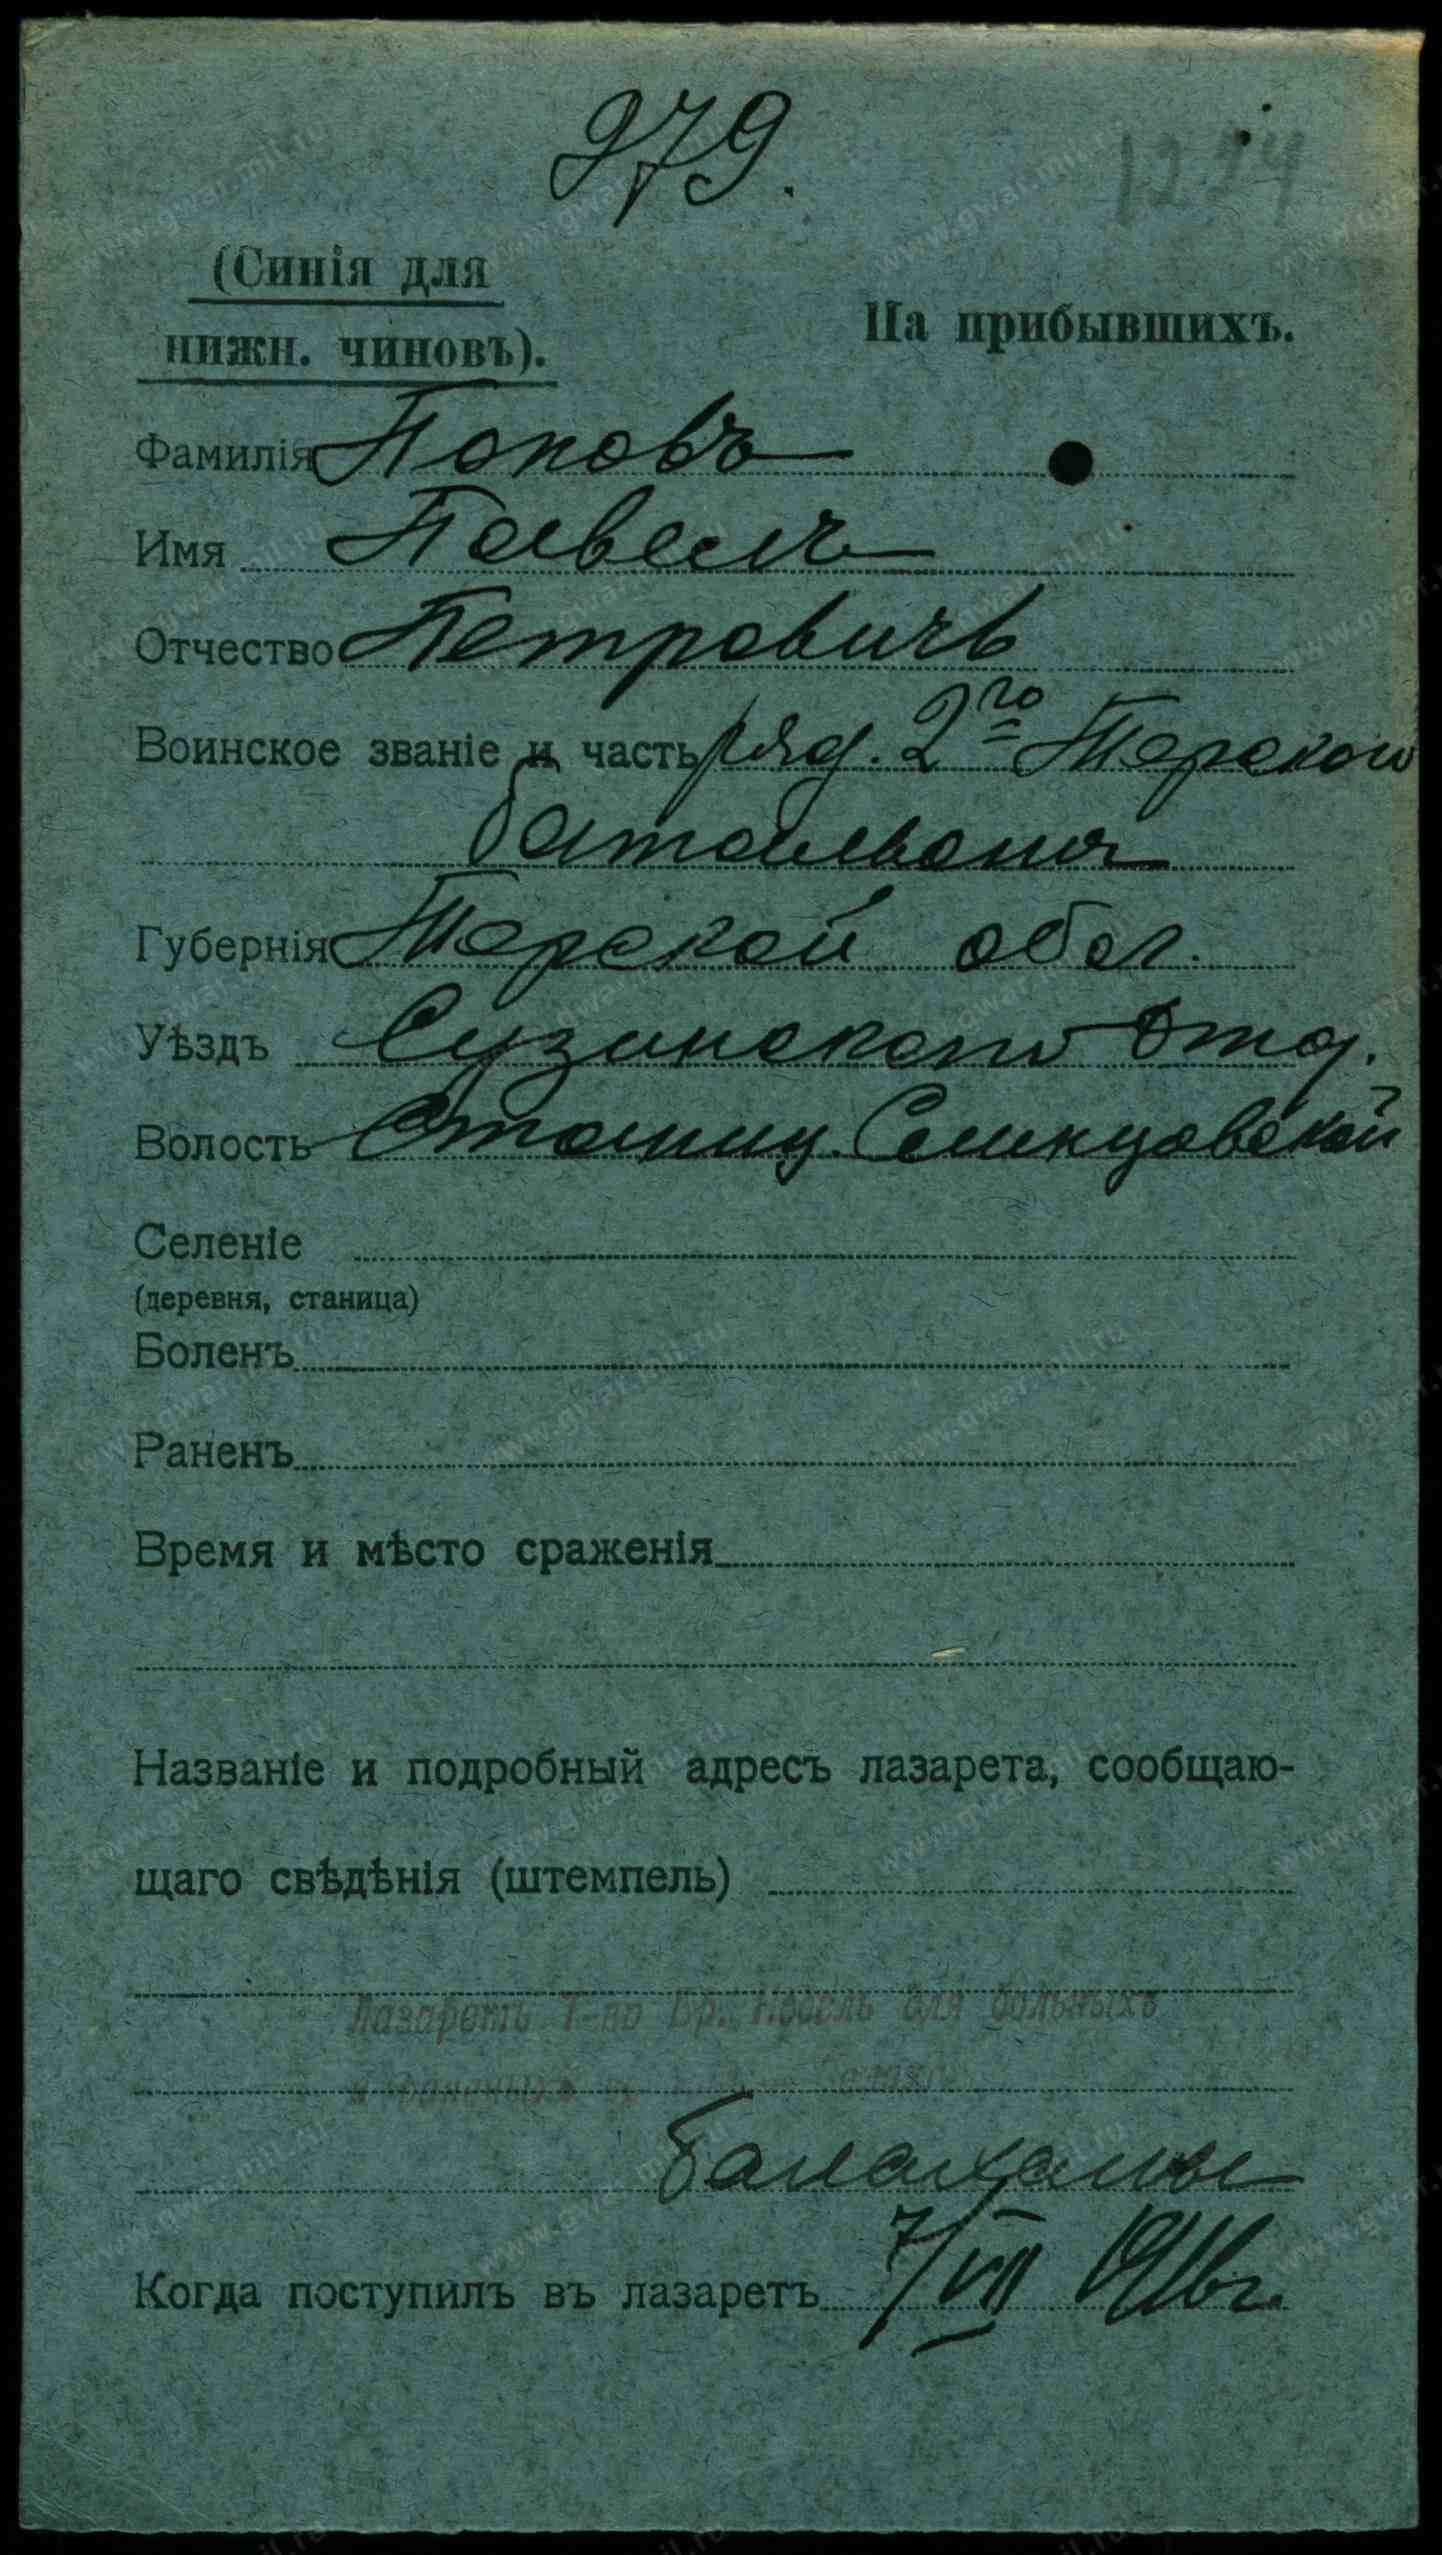 279.
1224
(Синія для
нижн. чиновъ).
На прибывшихъ.
Фамилія Поповъ
Имя Павелъ
Отчество Петровичъ
Воинское званіе и часть ряд. 2го Терскаго
баталіона
Губернія Терской обл.
Уѣздъ Сузинскаго Отд.
Волость Станиц. Слепцовской
Селеніе
(деревня, станица)
Боленъ
Раненъ
Время и мѣсто сраженія
Названіе и подробный адресъ лазарета, сообщаю-
щаго свѣдѣнія (штемпель)
Лазаретъ Т-во Бр. Нобель для больныхъ
и раненыхъ
Балаханы
Когда поступилъ въ лазаретъ 7/VII 1916г.
www.gwar.mil.ru